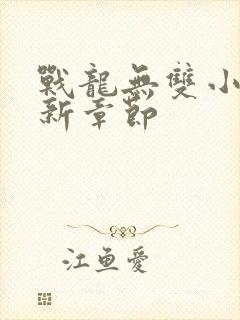 戰龍無雙小
新章節
江魚愛